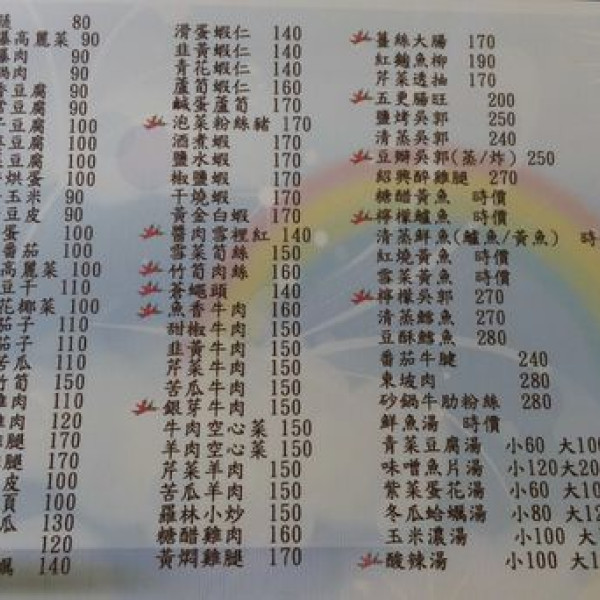 80
高麗菜 90
肉 90
肉 90
豆腐 90
豆腐 90
豆腐 100
豆腐 100
豆腐 100
烘蛋 100
玉米 90
豆皮 90
蛋 100
番茄 100
高麗菜 100
豆干 110
花椰菜 100
茄子 110
茄子 110
苦瓜 110
竹筍 150
雞肉 110
雞肉 120
雞腿 170
雞腿 170
皮 100
頁 100
瓜 130
120
140
滑蛋蝦仁 140
韭黃蝦仁 140
青花蝦仁 140
蘆筍蝦仁 160
鹹蛋蘆筍 170
泡菜粉絲豬 170
酒煮蝦 170
鹽水蝦 170
椒鹽蝦 170
干燒蝦 170
黃金白蝦 170
醬肉雪裡紅 140
雪菜筍絲 150
竹筍肉絲 160
蒼蠅頭 140
魚香牛肉 160
甜椒牛肉 150
韭黃牛肉 150
芹菜牛肉 150
苦瓜牛肉 150
銀芽牛肉 150
牛肉空心菜 150
羊肉空心菜 150
芹菜羊肉 150
苦瓜羊肉 150
羅林小炒 150
糖醋雞肉 160
黃燜雞腿 170
薑絲大腸 170
紅鮋魚柳 190
芹菜透抽 170
五更腸旺 200
鹽烤吳郭 250
清蒸吳郭 240
豆瓣吳郭(蒸/炸) 250
紹興醉雞腿 270
糖醋黃魚 時價
檸檬鱸魚 時價
清蒸鮮魚(鱸魚/黃魚) 時
紅燒黃魚 時價
雪菜黃魚 時價
檸檬吳郭 270
清蒸鱈魚 270
豆酥鱈魚 280
番茄牛腱 240
東坡肉 280
砂鍋牛肋粉絲 280
鮮魚湯 時價
青菜豆腐湯 小60 大100
味噌魚片湯 小120大20
紫菜蛋花湯 小60 大10
冬瓜蛤蠣湯 小80 大12
玉米濃湯 小100 大1
酸辣湯 小100 大1